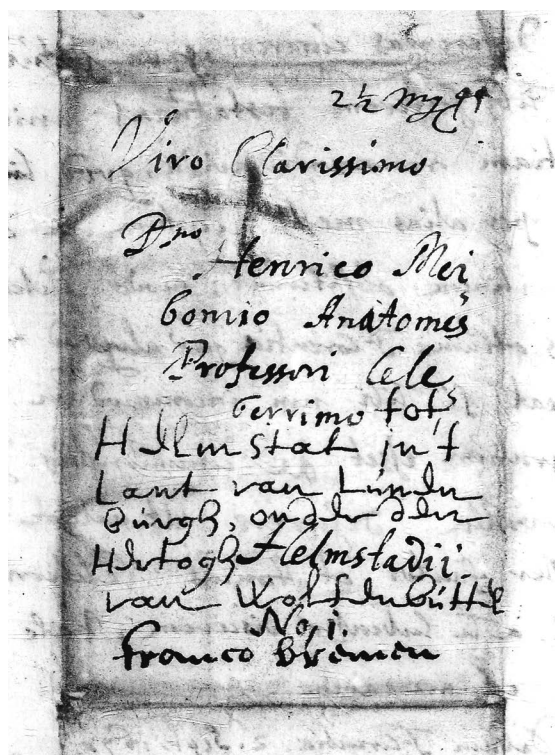 2½ mgg
Viro Clarissimo
Dno Henrico Mei
bomio Anatomes
Professori Cele
berrimo tot
Helmstat in't
Lant van Lúnen
búrgh, onder den
Hertogh Helmstadii
van Wolfenbúttel
No, 1.
franco bremen